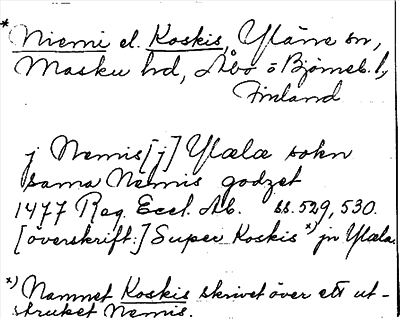 * Niemi el. Koskis, Yläne sn,
Masku hd, Åbo o Björneb. l,
Finland
j Nemis [j] Ylælæ sokn
sama Nemis godzet
1477 Reg. Eccl. Ab. ss. 529, 530.
[överskrift:] Super Koskis *) jn Ylæla.
*) Namnet Koskis skrivet över ett ut-
struket Nemis.